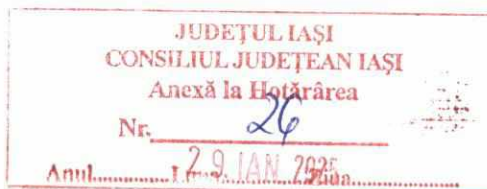 JUDEȚUL IAȘI
CONSILIUL JUDEȚEAN IAȘI
Anexă la Hotărârea
Nr. 26
Anul 29 IAN 2025